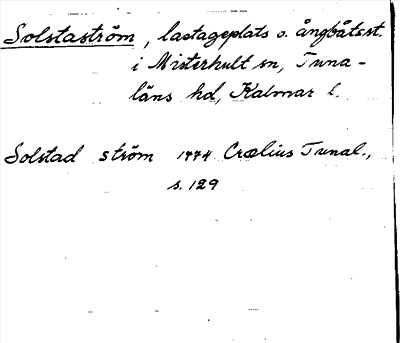 Solstaström, lastageplats o. ångbåtsst.
i Misterhult sn, Tuna-
läns hd, Kalmar l.
Solstad ström 1774 Crælius Tunal.,
s. 129